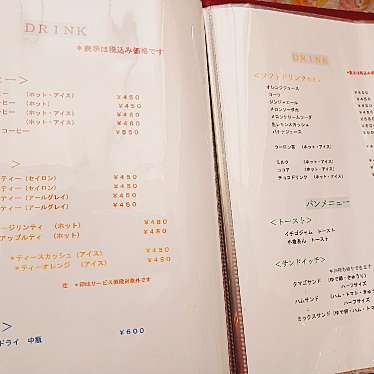 DRINK
*表示は税込み価格です
ー＞
ーヒー (ホット・アイス) ¥450
ーヒー (ホット) ¥450
ーヒー (ホット・アイス) ¥460
ーヒー (ホット・アイス) ¥460
コーヒー ¥550
＞
ティー (セイロン) ¥450
ティー (セイロン) ¥450
ティー (アールグレイ) ¥450
ティー (アールグレイ) ¥450
ージリンティ (ホット) ¥480
アップルティ (ホット) ¥480
*ティースカッシュ (アイス) ¥480
*ティーオレンジ (アイス) ¥480
注 *印はサービス値段対象外です
＞
ドライ 中瓶 ¥600
DRINK
＜ソフトドリンク
*表示は税込み価
オレンジジュース
コーラ
ジンジャエール
メロンソーダ
メロンクリームソーダ
生レモンスカッシュ
バナナジュース
ウーロン茶 (ホット・アイス)
ミルク (ホット・アイス)
ココア (ホット・アイス)
チョコドリンク (ホット・アイス)
パンメニュー
＜トースト＞
イチゴジャム トースト
小倉あん トースト
＜サンドイッチ＞
タマゴサンド (ゆで卵・きゅうり)
ハーフサイズ
ハムサンド (ハム・トマト・きゅう
ハーフサイズ
ミックスサンド (ゆで卵・ハム・トマ